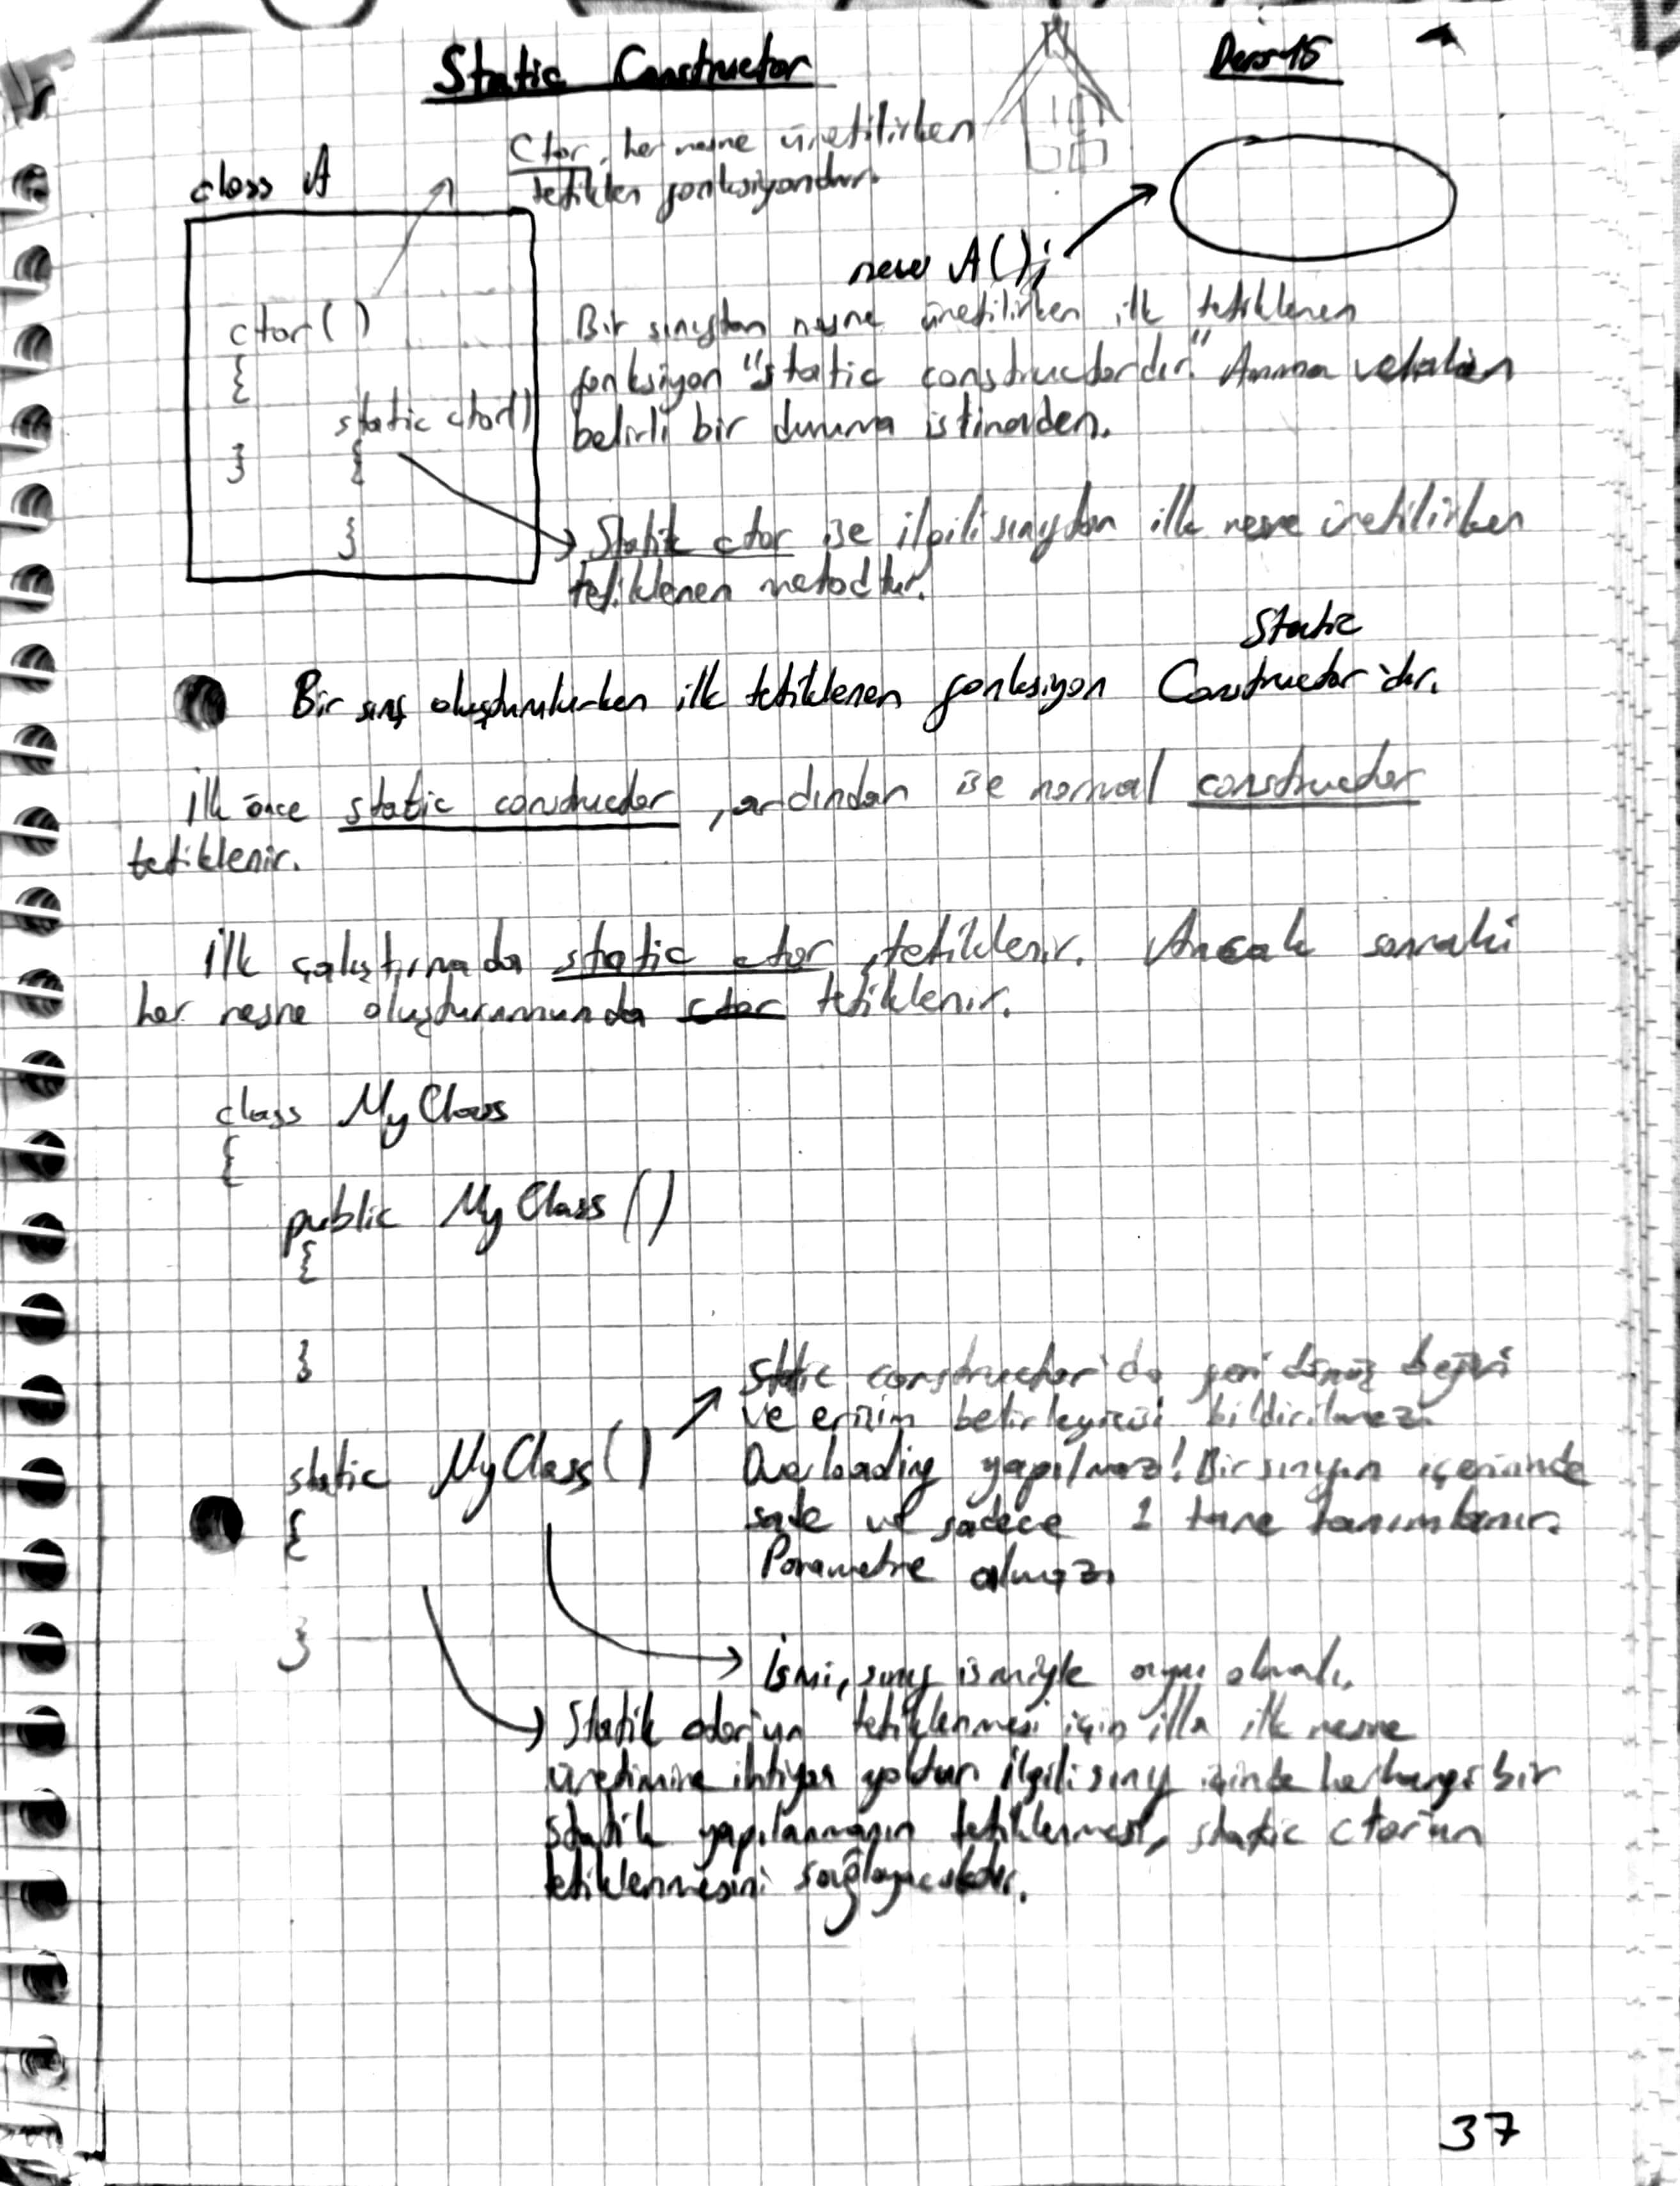 Static Constructor
Ders-15
Ctor, her nesne üretilirken
tetiklen fonksiyondur.
class A
new A();
ctor()
{
static ctor()
}
{
}
Bir sınıftan nesne üretilirken ilk tetiklenen
fonksiyon "static constructordır." Amma velakin
belirli bir duruma istinaden.
Statik ctor ise ilgili sınıftan ilk nesne üretilirken
tetiklenen metodtur.
Static
Bir sınıf oluşturulurken ilk tetiklenen fonksiyon Constructor'dır.
İlk önce static constructor, ardından ise normal constructor
tetiklenir.
İlk çalıştırmada static ctor tetiklenir. Ancak sonraki
her nesne oluşturumunda ctor tetiklenir.
class MyClass
{
public MyClass()
{
}
static MyClass()
{
}
Static constructor'da geri dönüş değeri
ve erişim belirleyicisi bildirilmez.
Overloading yapılmaz! Bir sınıfın içerisinde
sade ve sadece 1 tane tanımlanır.
Parametre almaz.
İsmi, sınıf ismiyle aynı olmalı.
Statik ctor'un tetiklenmesi için illa ilk nesne
üretimine ihtiyaç yoktur ilgili sınıf içinde herhangi bir
statik yapılanmanın tetiklenmesi, static ctor'un
tetiklenmesini sağlayacaktır.
37